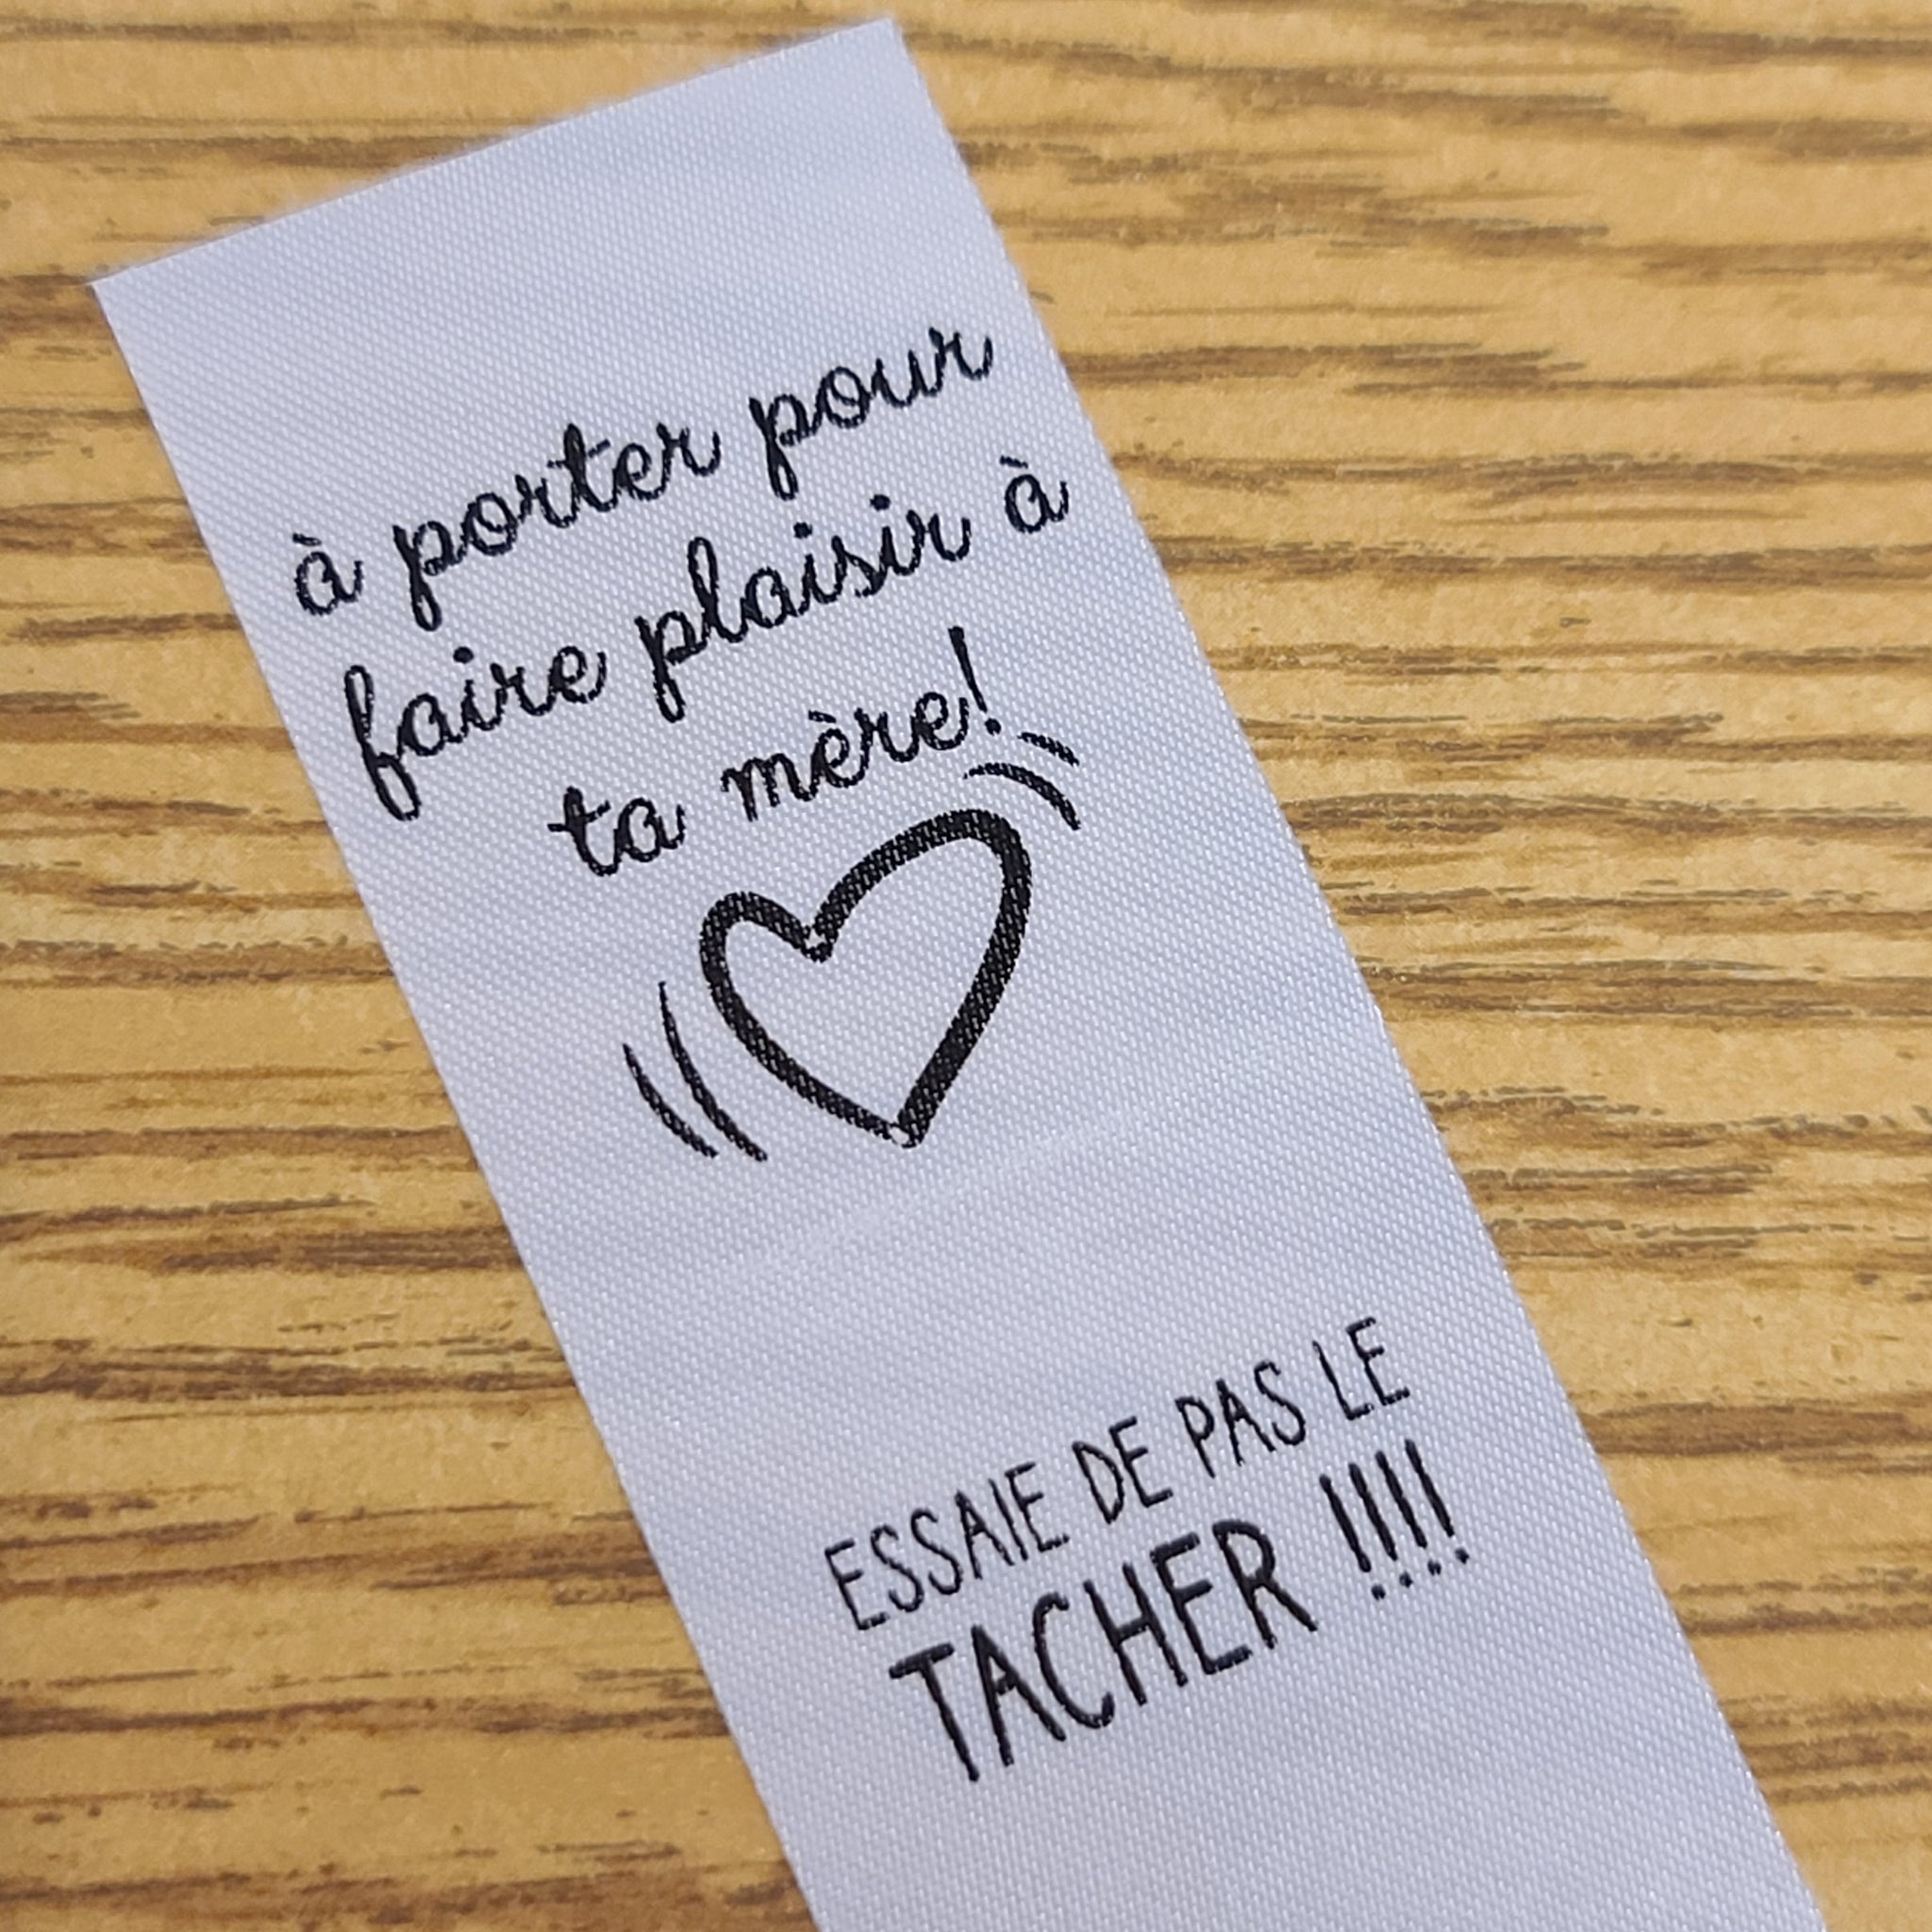 à porter pour
faire plaisir à
ta mère!
ESSAIE DE PAS LE
TACHER !!!!